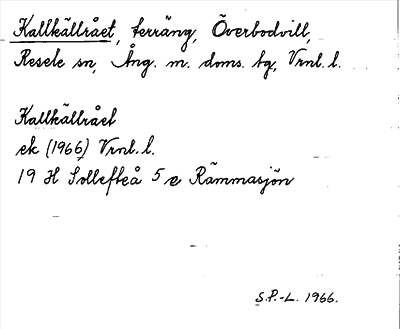 Kallkällrået, terräng, Överbodvill,
Resele sn, Ång. m. doms. tg, Vrnl. l.
Kallkällrået
ek (1966) Vrnl. l.
19 H Sollefteå 5 e Rämmasjön
S.P.-L. 1966.